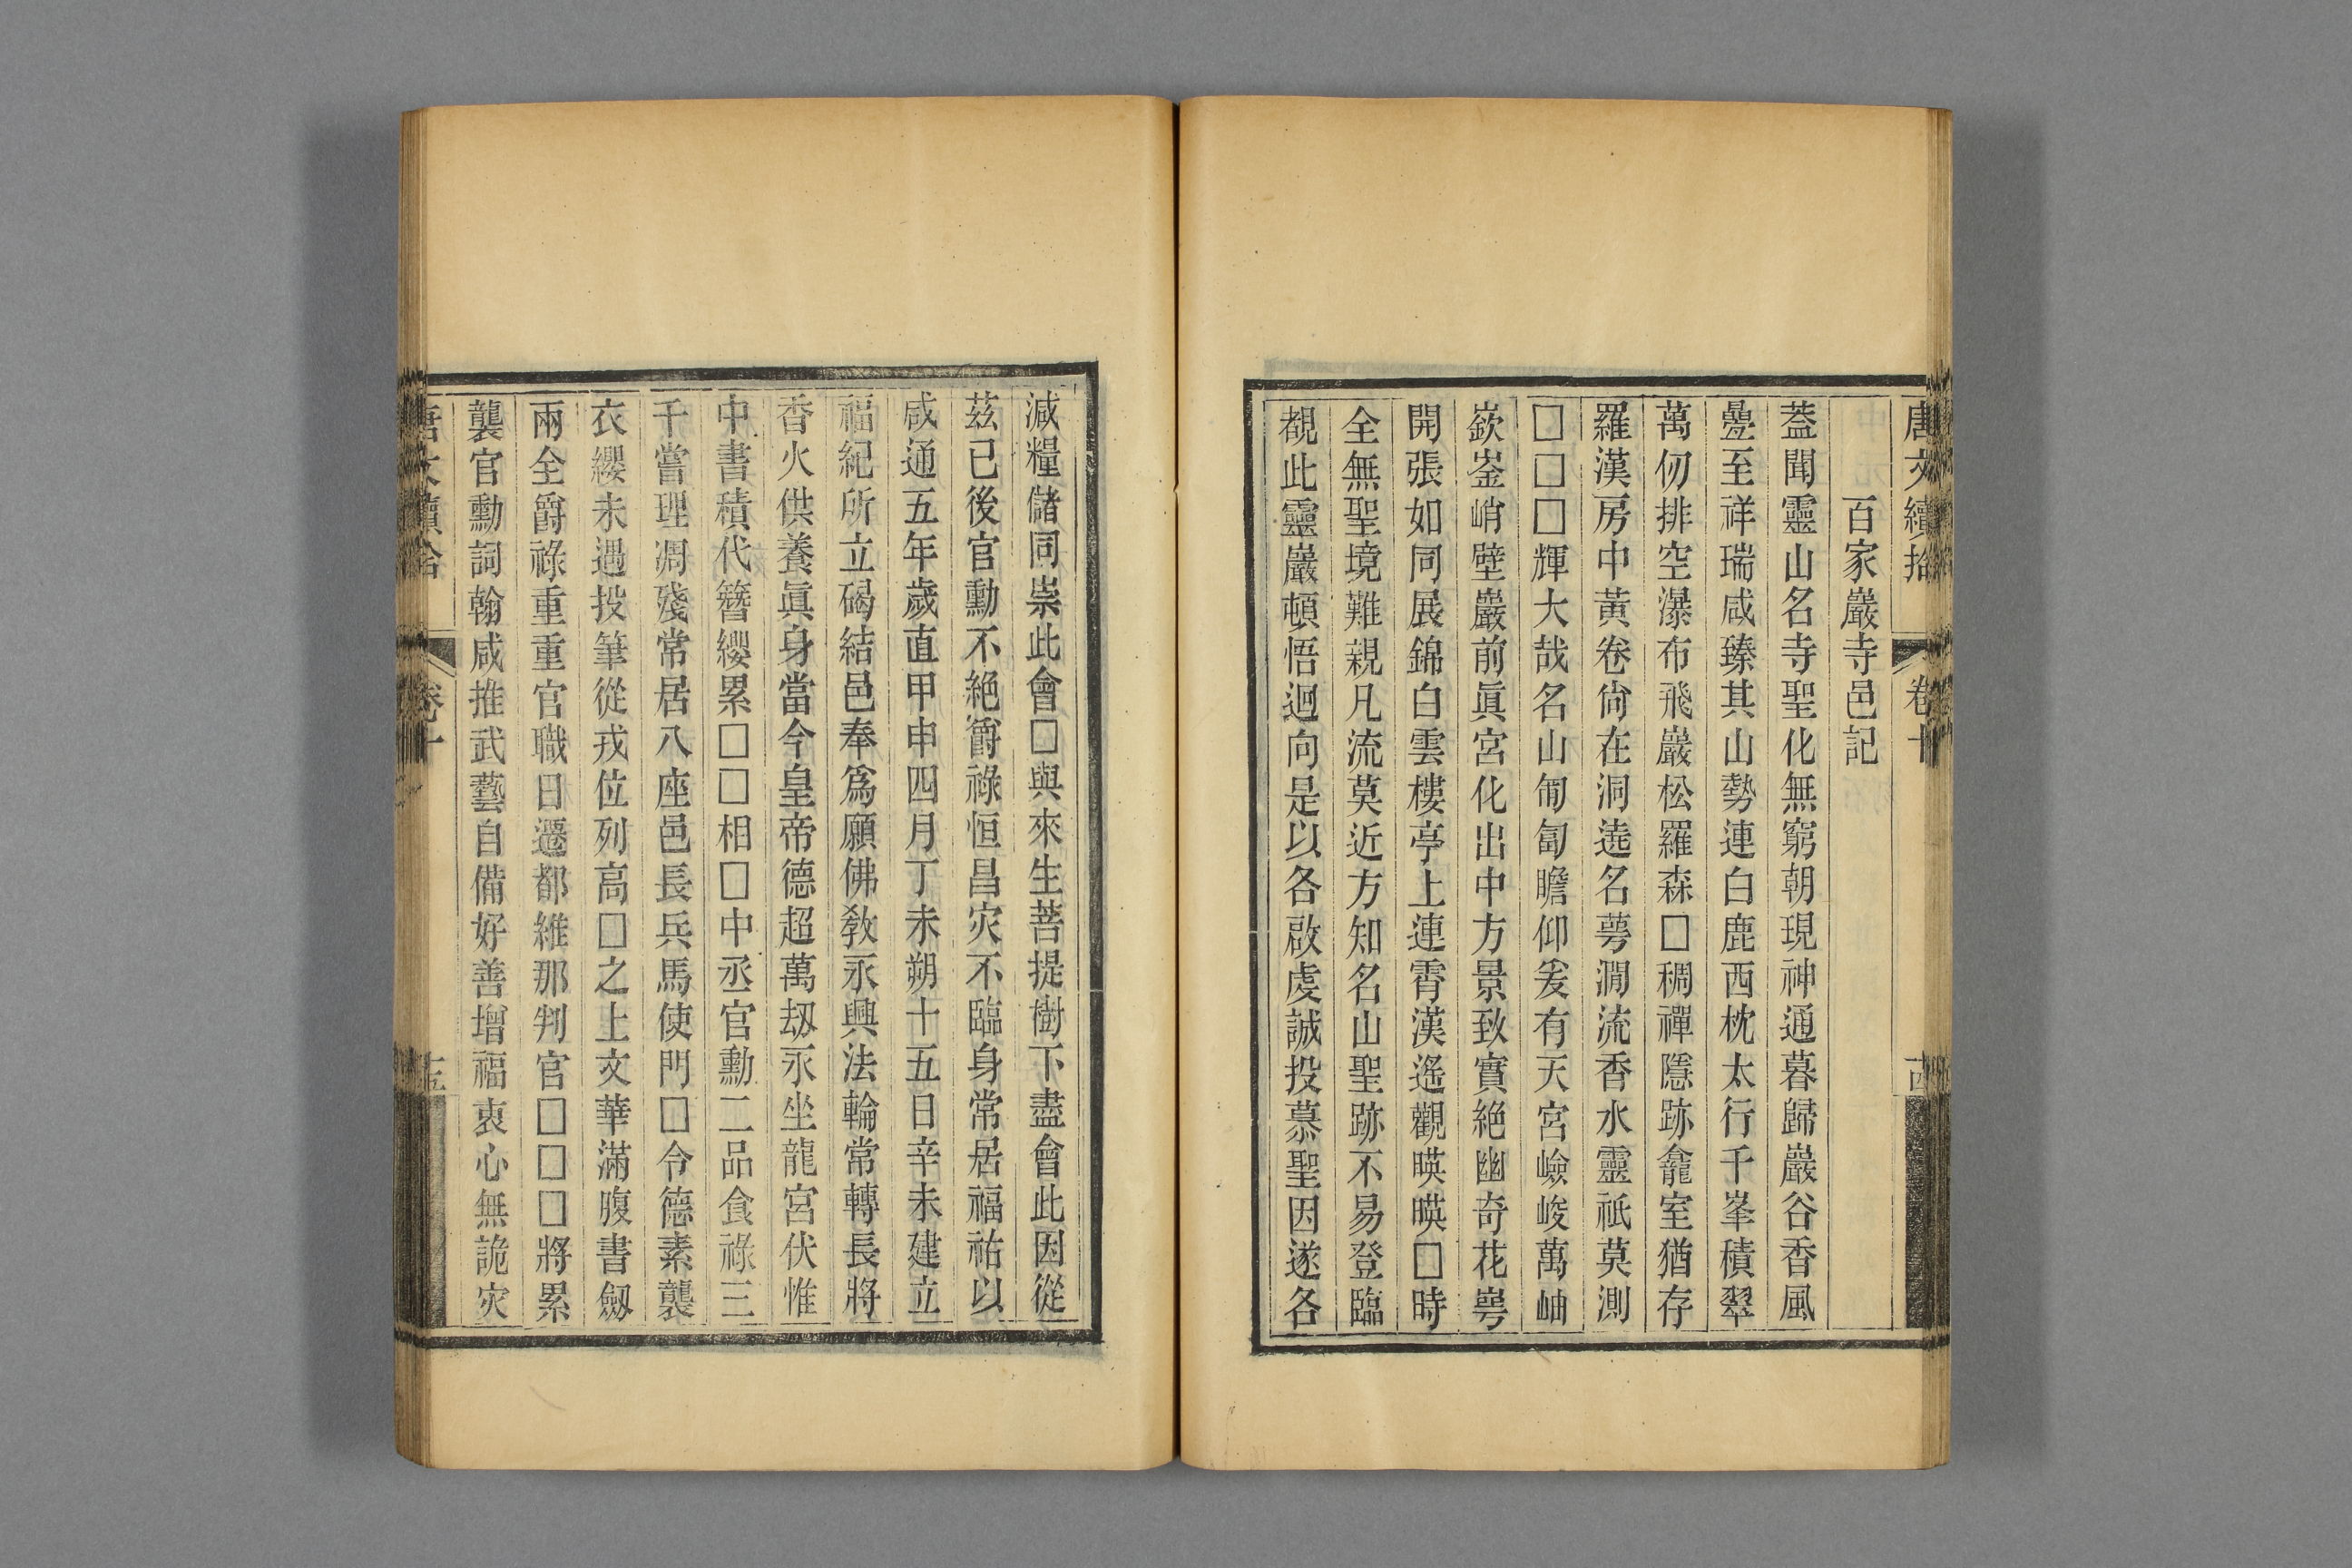 唐文續拾 卷十 十四
百家巖寺邑記
葢聞靈山名寺聖化無窮朝現神通暮歸巖谷香風
曡至祥瑞咸臻其山勢連白鹿西枕太行千峯積翠
萬仞排空瀑布飛巖松羅森□稠禪隱跡龕室猶存
羅漢房中黃卷尙在洞遶名蕚澗流香水靈祇莫測
□□□輝大哉名山匍匐瞻仰爰有天宮嶮峻萬岫
嶔崟峭壁巖前眞宮化出中方景致實絶幽奇花萼
開張如同展錦白雲樓亭上連霄漢遙觀暎暎□時
全無聖境難親凡流莫近方知名山聖跡不易登臨
覩此靈巖頓悟迴向是以各啟虔誠投慕聖因遂各
減糧儲同崇此會□與來生菩提樹下盡會此因從
茲已後官勳不絕爵祿恒昌灾不臨身常居福祐以
咸通五年歲直甲申四月丁未朔十五日辛未建立
福紀所立碣結邑奉爲願佛敎永興法輪常轉長將
香火供養眞身當今皇帝德超萬刼永坐龍宮伏惟
中書積代簪纓累□□相□中丞官勳二品食祿三
千嘗理凋殘常居八座邑長兵馬使門□令德素襲
衣纓未遇投筆從戎位列高□之上文華滿腹書劒
兩全爵祿重重官職日遷都維那判官□□□將累
襲官勳詞翰咸推武藝自備好善增福衷心無詭灾
唐文續拾 卷十 十五